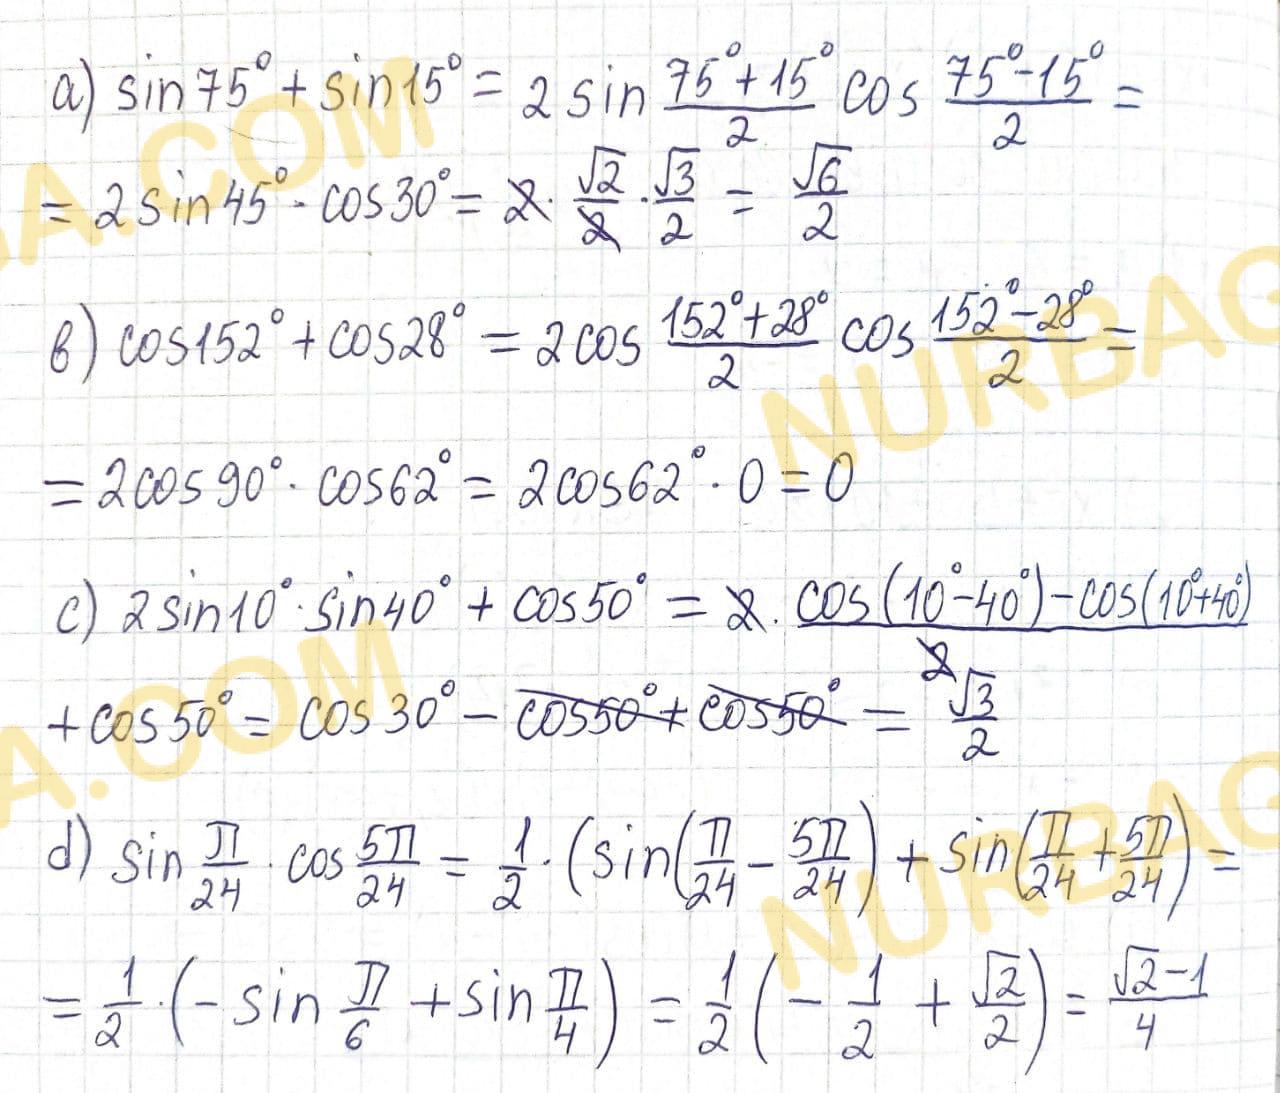 a) sin75° + sin15° = 2 sin (75°+15°)/2 cos (75°-15°)/2 =
= 2sin45° · cos30° = 2 · √2/2 · √3/2 = √6/2
b) cos152° + cos28° = 2cos (152°+28°)/2 cos (152°-28°)/2 =
= 2cos90° · cos62° = 2cos62° · 0 = 0
c) 2sin10° · sin40° + cos50° = 2 · (cos(10°-40°) - cos(10°+40°))/2
+ cos50° = cos30° - cos50° + cos50° = √3/2
d) sin π/24 · cos 5π/24 = 1/2 · (sin(π/24 - 5π/24) + sin(π/24 + 5π/24) =
= 1/2 · (- sin π/6 + sin π/4) = 1/2 (- 1/2 + √2/2) = (√2-1)/4
GA.COM
NURBAG
A.COM
NURBAG